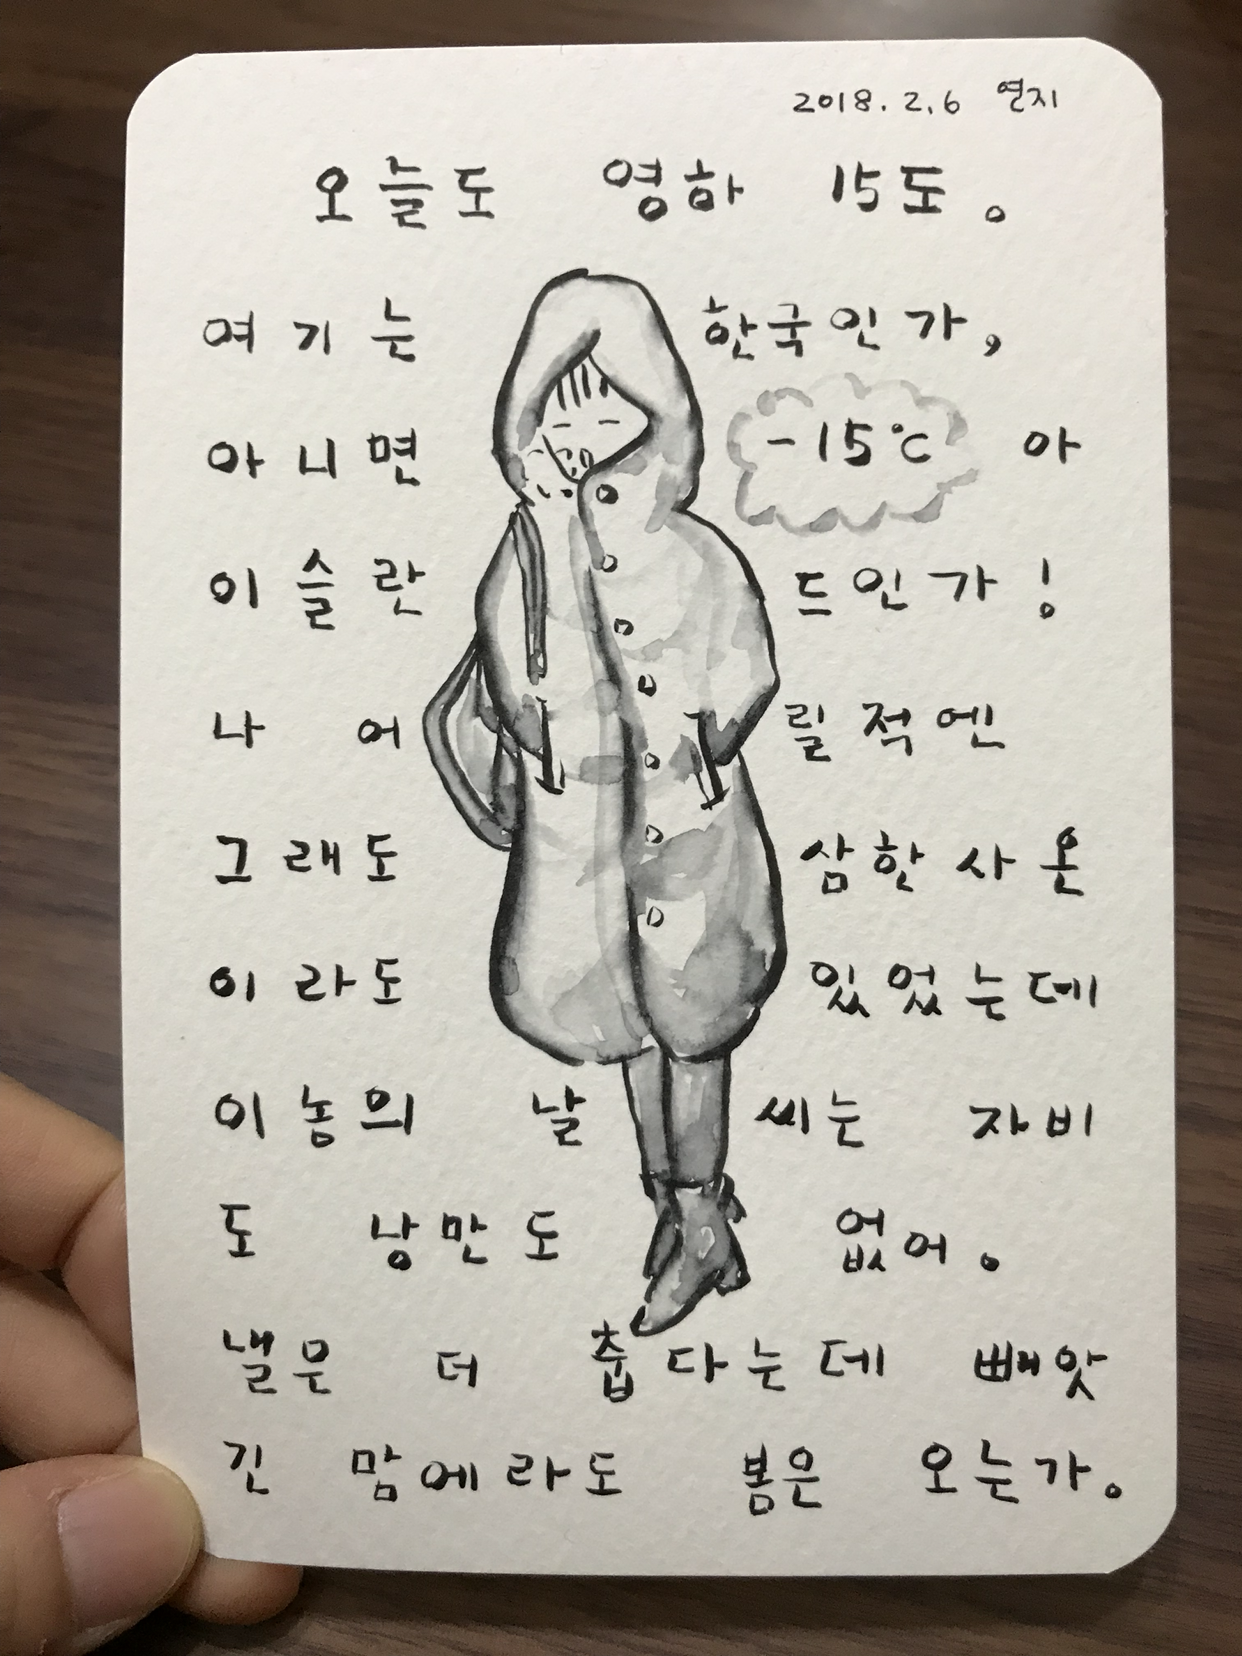 2018. 2. 6 연지
오늘도 영하 15도。
여기는 한국인가,
아니면 -15℃ 아
이슬란드인가!
나 어릴적엔
그래도 삼한사온
이라도 있었는데
이놈의 날씨는 자비
도 낭만도 없어。
낼은 더 춥다는데 빼앗
긴 맘에라도 봄은 오는가。